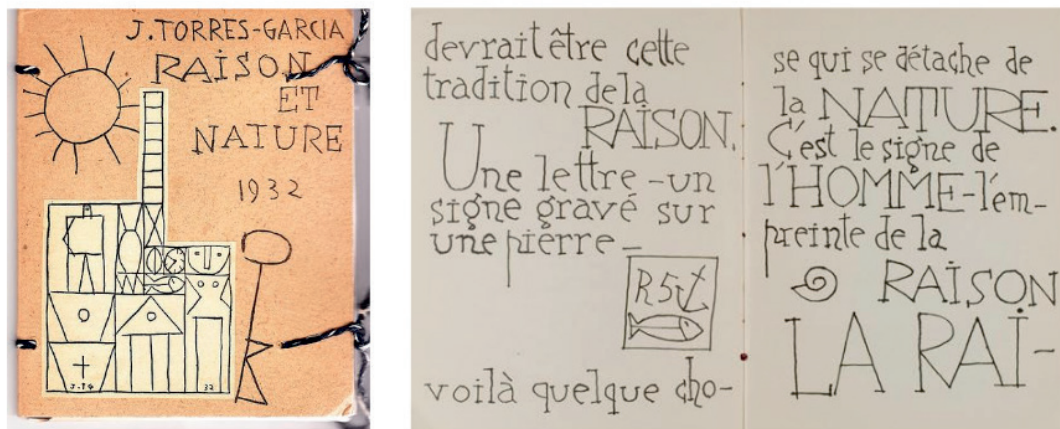 J. TORRES-GARCIA
RAISON
ET
NATURE
1932
J.TG
32
devrait être cette
tradition de la
RAISON.
Une lettre - un
signe gravé sur
une pierre -
R5
voilà quelque cho-
se qui se détache de
la NATURE.
C'est le signe de
l'HOMME - l'em-
preinte de la
RAISON
LA RAI-